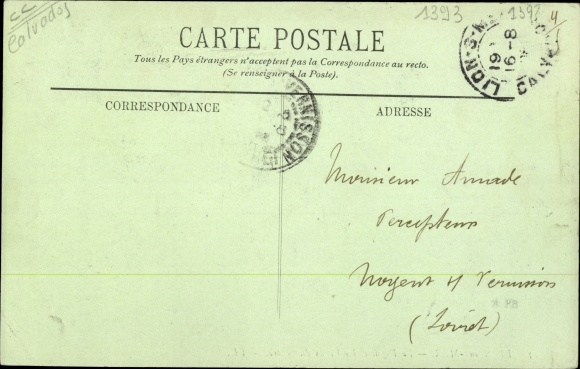 CC
Calvados
1393
1392
4
CARTE POSTALE
Tous les Pays étrangers n'acceptent pas la Correspondance au recto.
(Se renseigner à la Poste).
LION-S-M
19
16-8
CALV
VERNISSON
CORRESPONDANCE
ADRESSE
Monsieur Amade
Percepteur
Nogent s/ Vernisson
(Loiret)